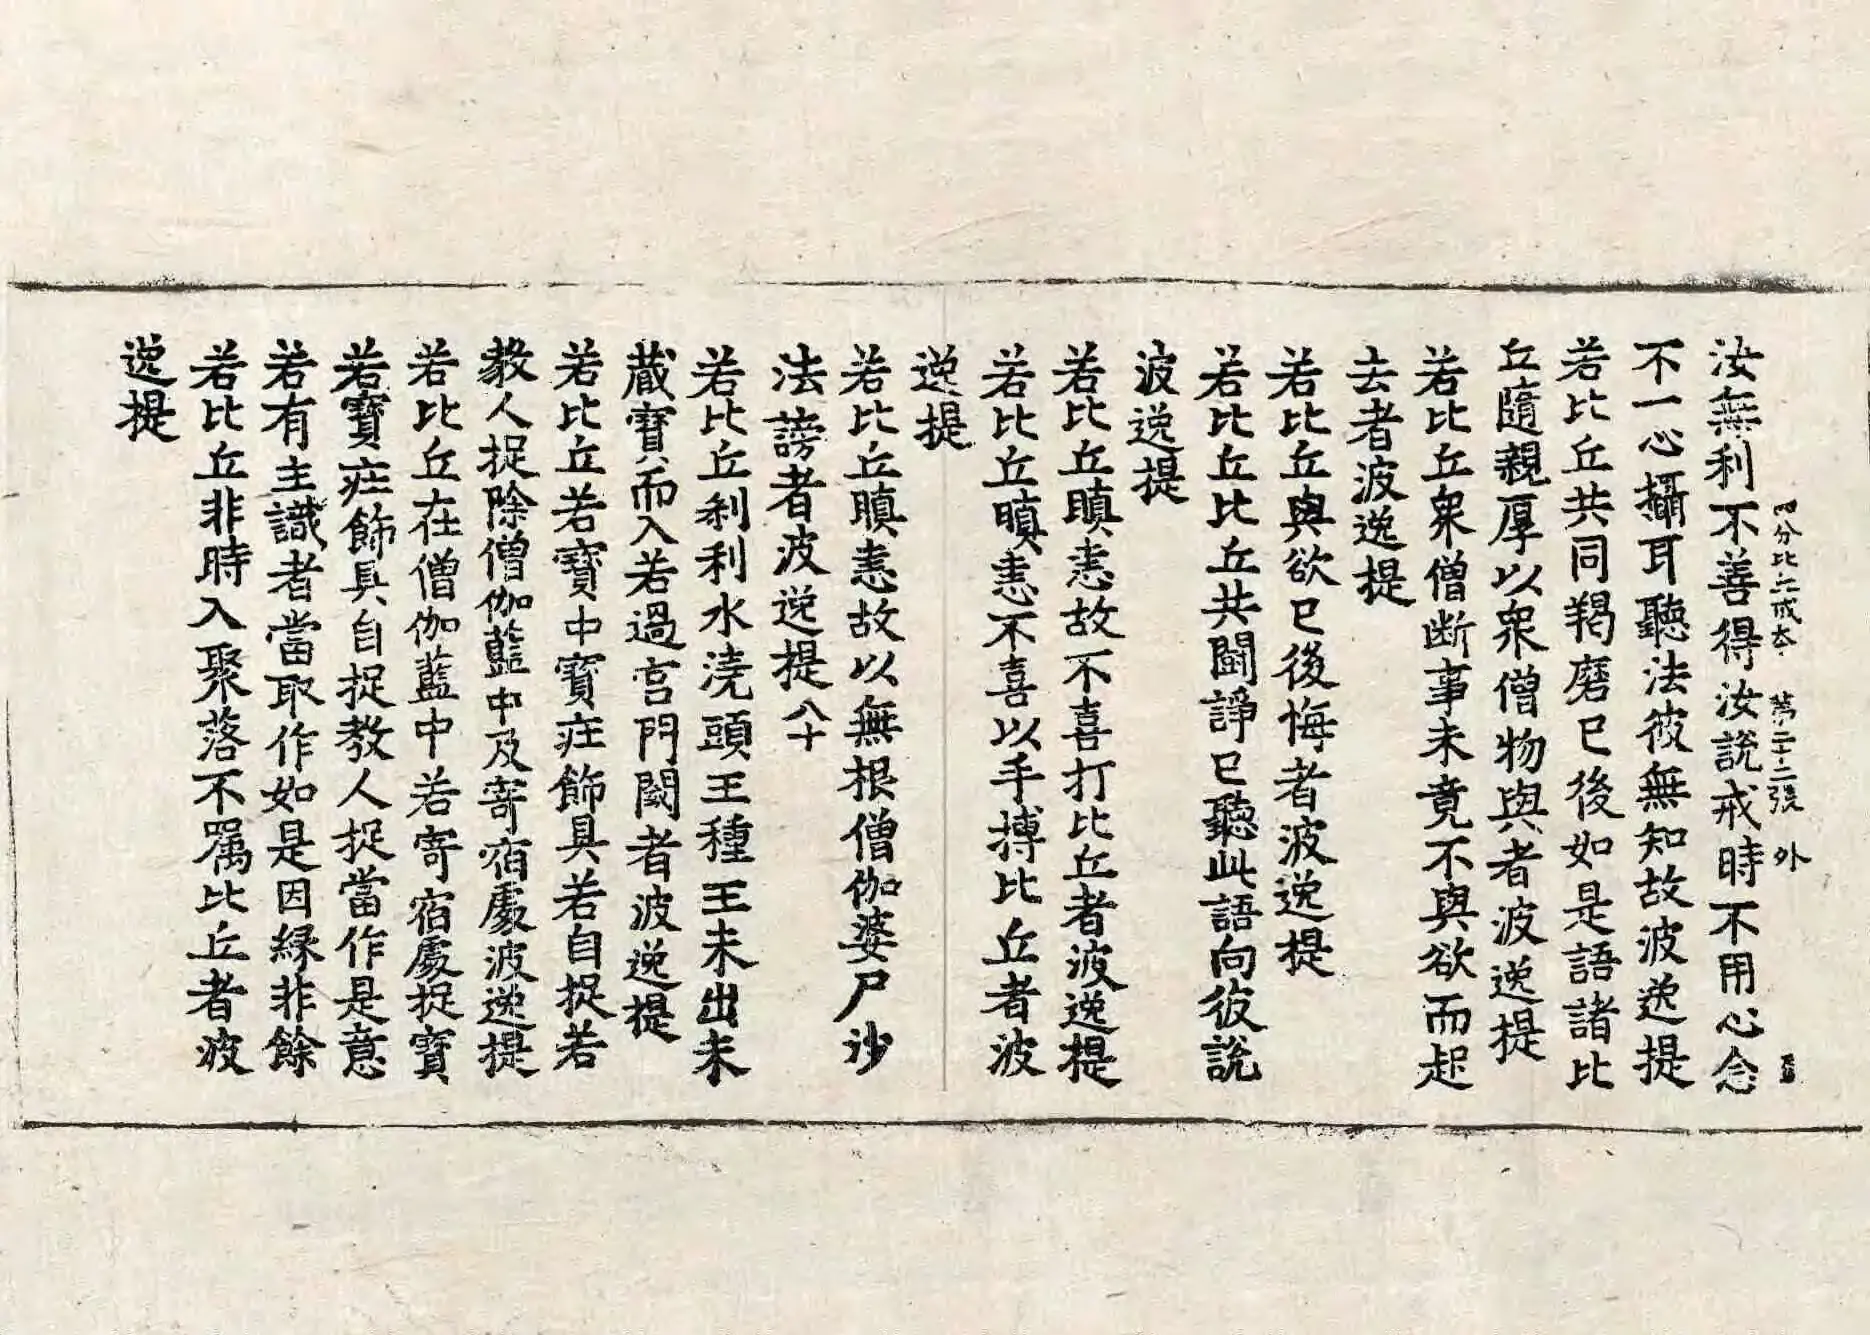 四分比丘戒本 第二十二張 外
汝無利不善得汝說戒時不用心念
不一心攝耳聽法彼無知故波逸提
若比丘共同羯磨已後如是語諸比
丘隨親厚以衆僧物與者波逸提
若比丘衆僧断事未竟不與欲而起
去者波逸提
若比丘與欲已後悔者波逸提
若比丘比丘共鬪諍已聽此語向彼說
波逸提
若比丘瞋恚故不喜打比丘者波逸提
若比丘瞋恚不喜以手搏比丘者波
逸提
若比丘瞋恚故以無根僧伽婆尸沙
法謗者波逸提 八十
若比丘刹利水澆頭王種王未出未
蔵寶而入若過宫門閾者波逸提
若比丘若寶中寶庄飾具若自捉若
教人捉除僧伽藍中及寄宿處波逸提
若比丘在僧伽藍中若寄宿處捉寶
若寶庄飾具自捉教人捉當作是意
若有主識者當取作如是因緣非餘
若比丘非時入聚落不属比丘者波
逸提